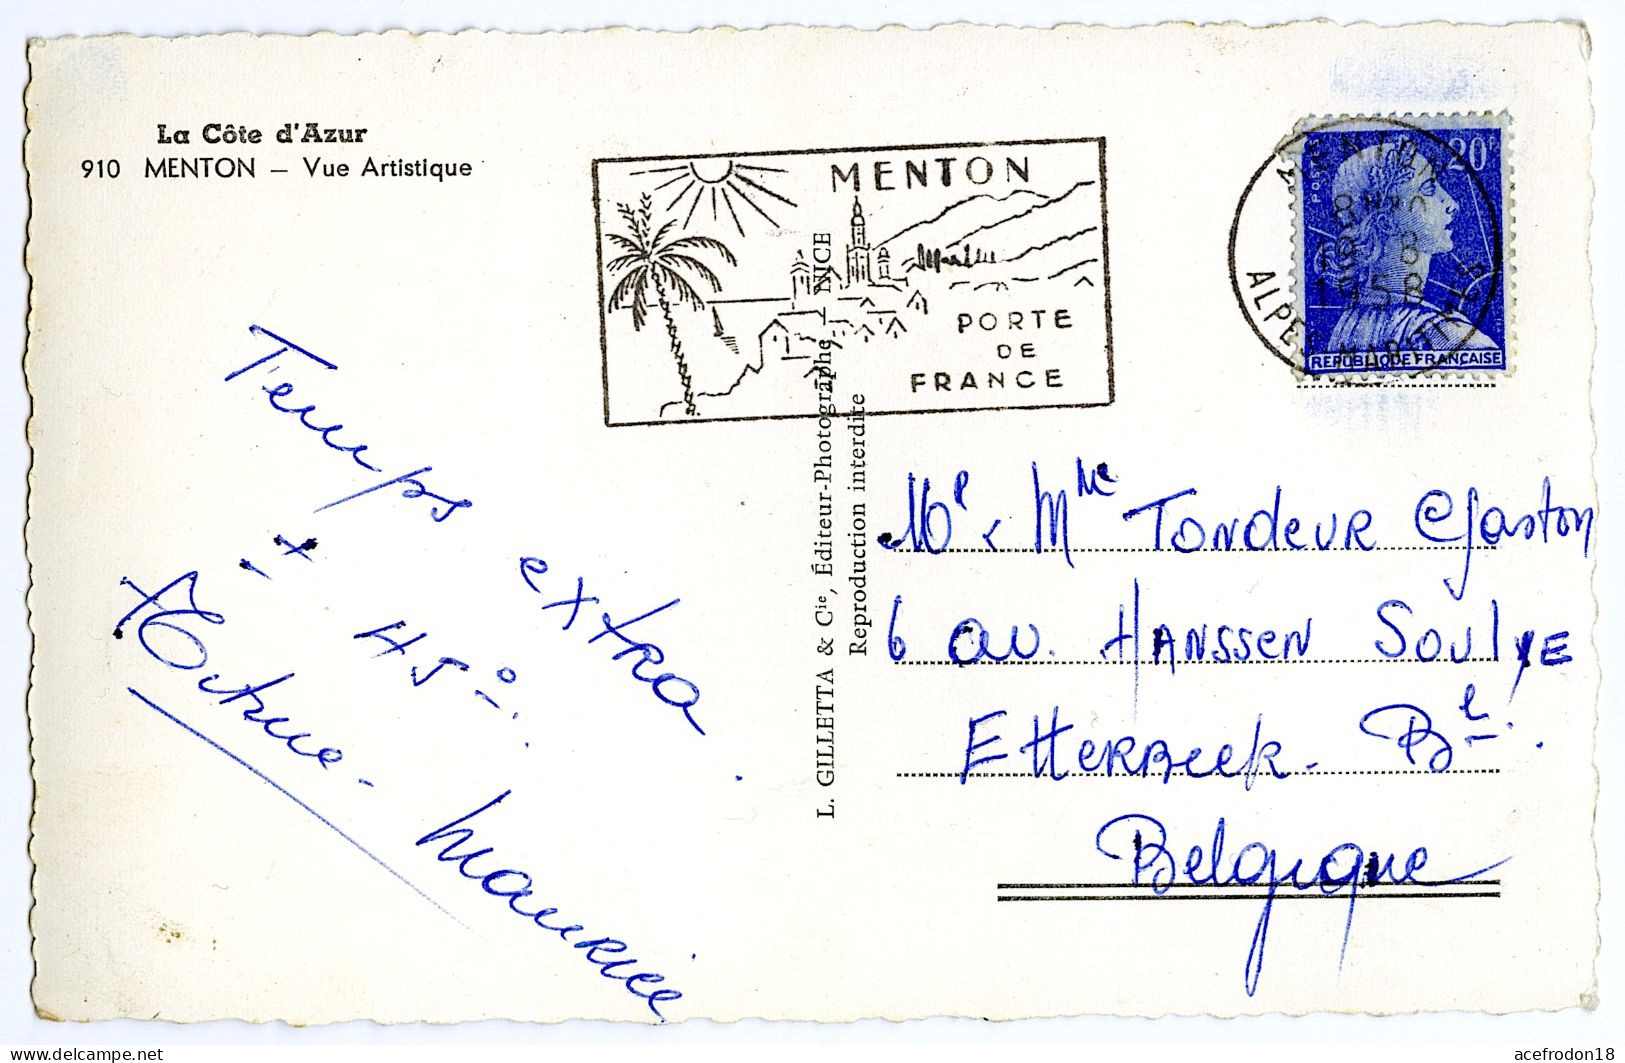 La Côte d'Azur
910 MENTON – Vue Artistique
MENTON
PORTE
DE
FRANCE
MENTON
8
1958
ALPES MARITIMES
20F
REPUBLIQUE FRANÇAISE
L. GILLETTA & Cie, Éditeur-Photographe NICE
Reproduction interdite
Temps extra.
+ 45°.
Maurice
Mme Tondeur Gaston
6 av. HANSSEN Soulye
Etterbeek. Bl.
Belgique
acefrodon18